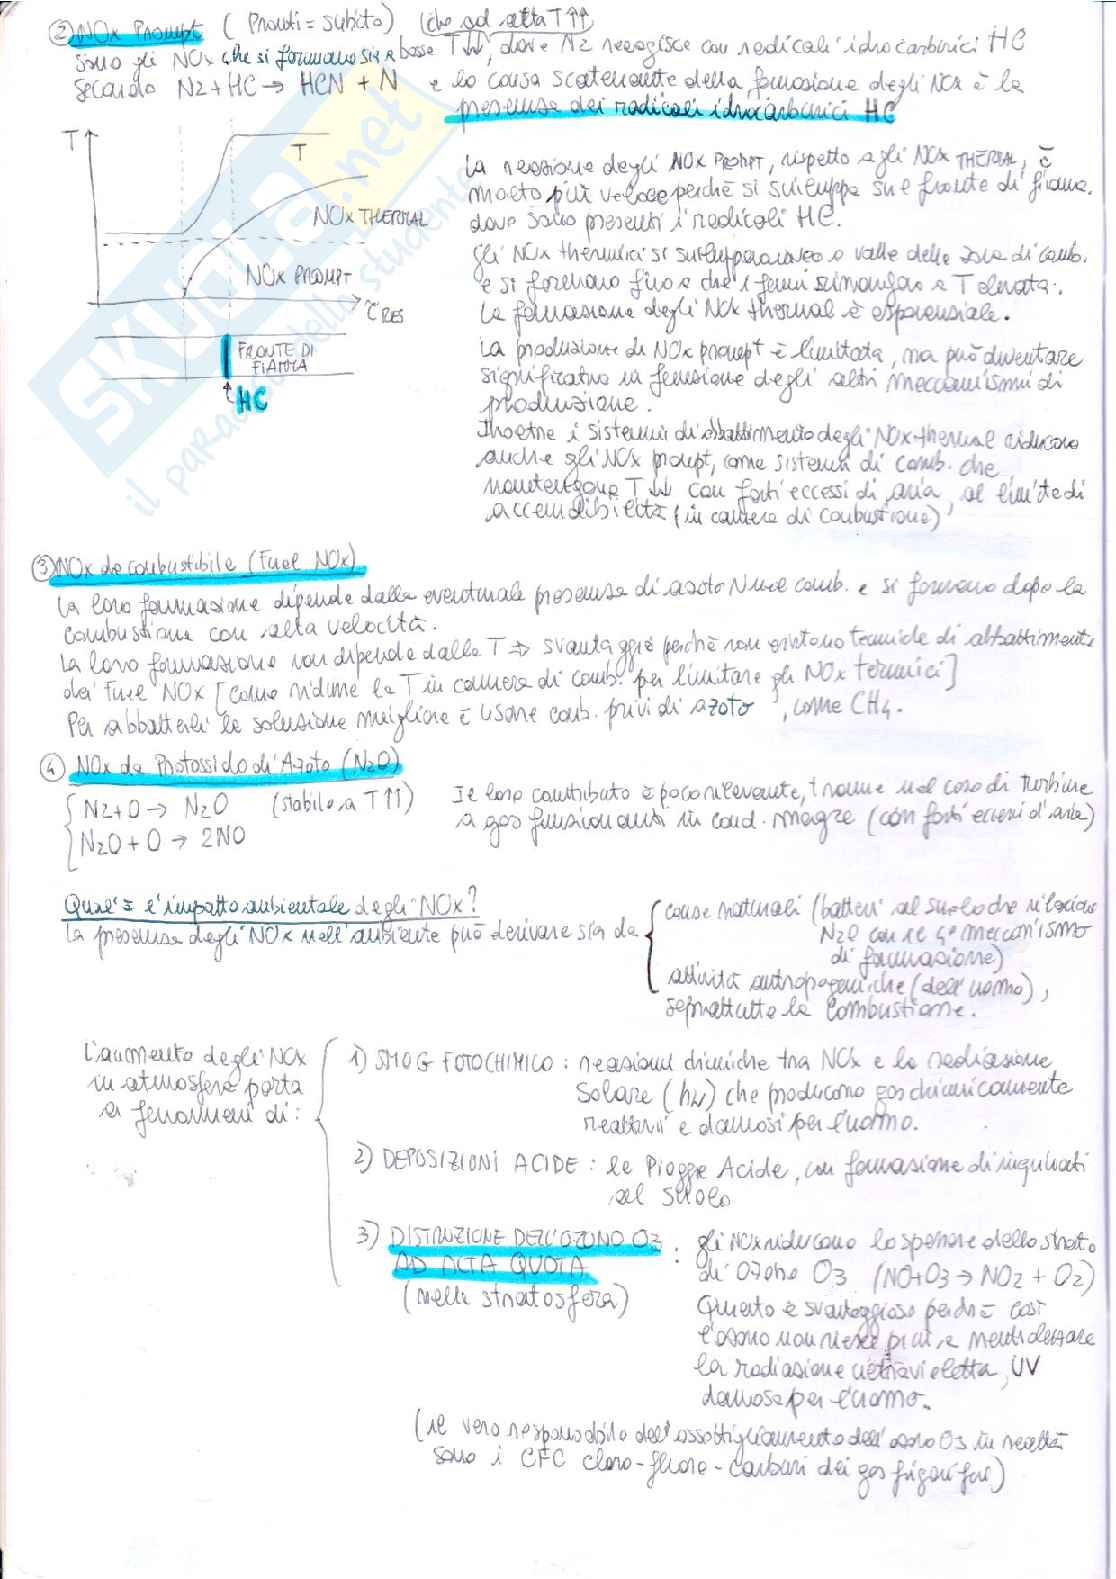 ② NOx Prompt ( Pronti = subito ) (che ad alta T↑↑
sono gli NOx che si formano sia a bassa T↓↓, dove N2 reagisce con radicali idrocarburici HC
secondo N2 + HC → HCN + N e la causa scatenante della formazione degli NOx è la
presenza dei radicali idrocarburici HC
T
T
NOx THERMAL
NOx PROMPT
τRES
FRONTE DI
FIAMMA
HC
La reazione degli NOx PROMPT, rispetto agli NOx THERMAL, è
molto più veloce perché si sviluppa sul fronte di fiamma,
dove sono presenti i radicali HC.
Gli NOx thermici si sviluppano a valle della zona di comb.
e si formano fino a che i fumi rimangono a T elevata.
La formazione degli NOx thermal è esponenziale.
La produzione di NOx prompt è limitata, ma può diventare
significativa in funzione degli altri meccanismi di
produzione.
Inoltre i sistemi di abbattimento degli NOx thermal riducono
anche gli NOx prompt, come sistemi di comb. che
mantengono T↓↓ con forti eccessi di aria, al limite di
accendibilità (in camera di combustione)
③ NOx da combustibile (Fuel NOx)
La loro formazione dipende dalla eventuale presenza di azoto N nel comb. e si formano dopo la
combustione con alta velocità.
La loro formazione non dipende dalla T ⇒ svantaggio perché non esistono tecniche di abbattimento
dei Fuel NOx [come ridurre la T in camera di comb. per limitare gli NOx termici]
Per abbatterli la soluzione migliore è usare comb. privi di azoto, come CH4.
④ NOx da Protossido di Azoto (N2O)
N2 + O → N2O (stabile a T↑↑)
N2O + O → 2NO
Il loro contributo è poco rilevante, tranne nel caso di turbine
a gas funzionanti in cond. magre (con forti eccessi d'aria)
Qual è l'impatto ambientale degli NOx?
La presenza degli NOx nell'ambiente può derivare sia da
cause naturali (batteri al suolo che rilasciano
N2O con il 4° meccanismo
di formazione)
attività antropogeniche (dell'uomo),
soprattutto la combustione.
L'aumento degli NOx
in atmosfera porta
a fenomeni di:
1) SMOG FOTOCHIMICO : reazioni chimiche tra NOx e la radiazione
solare (hν) che producono gas chimicamente
reattivi e dannosi per l'uomo.
2) DEPOSIZIONI ACIDE : le Piogge Acide, con formazione di inquinanti
al suolo
3) DISTRUZIONE DELL'OZONO O3
AD ALTA QUOTA
(nella stratosfera)
: gli NOx riducono lo spessore dello strato
di Ozono O3 (NO+O3 → NO2 + O2)
Questo è svantaggioso perché così
l'ozono non riesce più a neutralizzare
la radiazione ultravioletta, UV
dannosa per l'uomo.
(il vero responsabile dell'assottigliamento dell'ozono O3 in realtà
sono i CFC cloro-fluoro-carburi dei gas frigoriferi)
SKUOLA.net
il paradiso dello studente